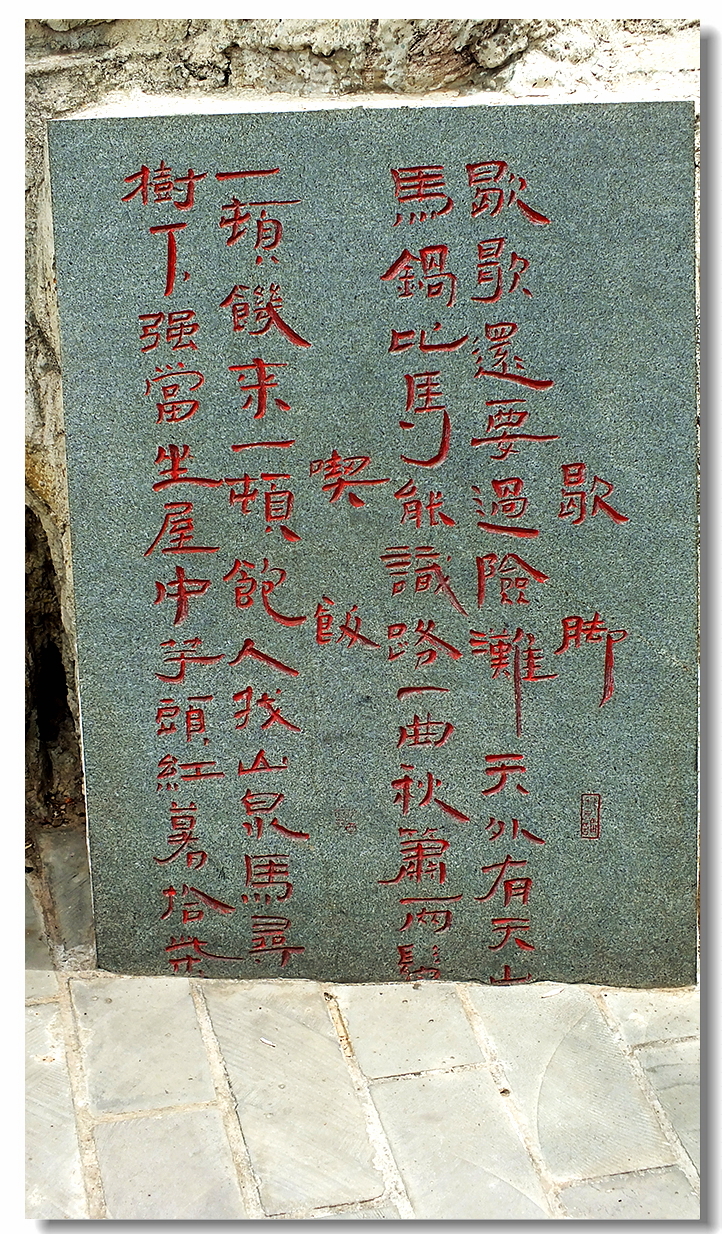 歇脚
歇歇還要過險灘天外有天山
馬鍋比馬能識路一曲秋簫兩鬢
喫飯
一頓饑來一頓飽人找山泉馬尋
樹下强當坐屋中芋頭紅薯拾柴